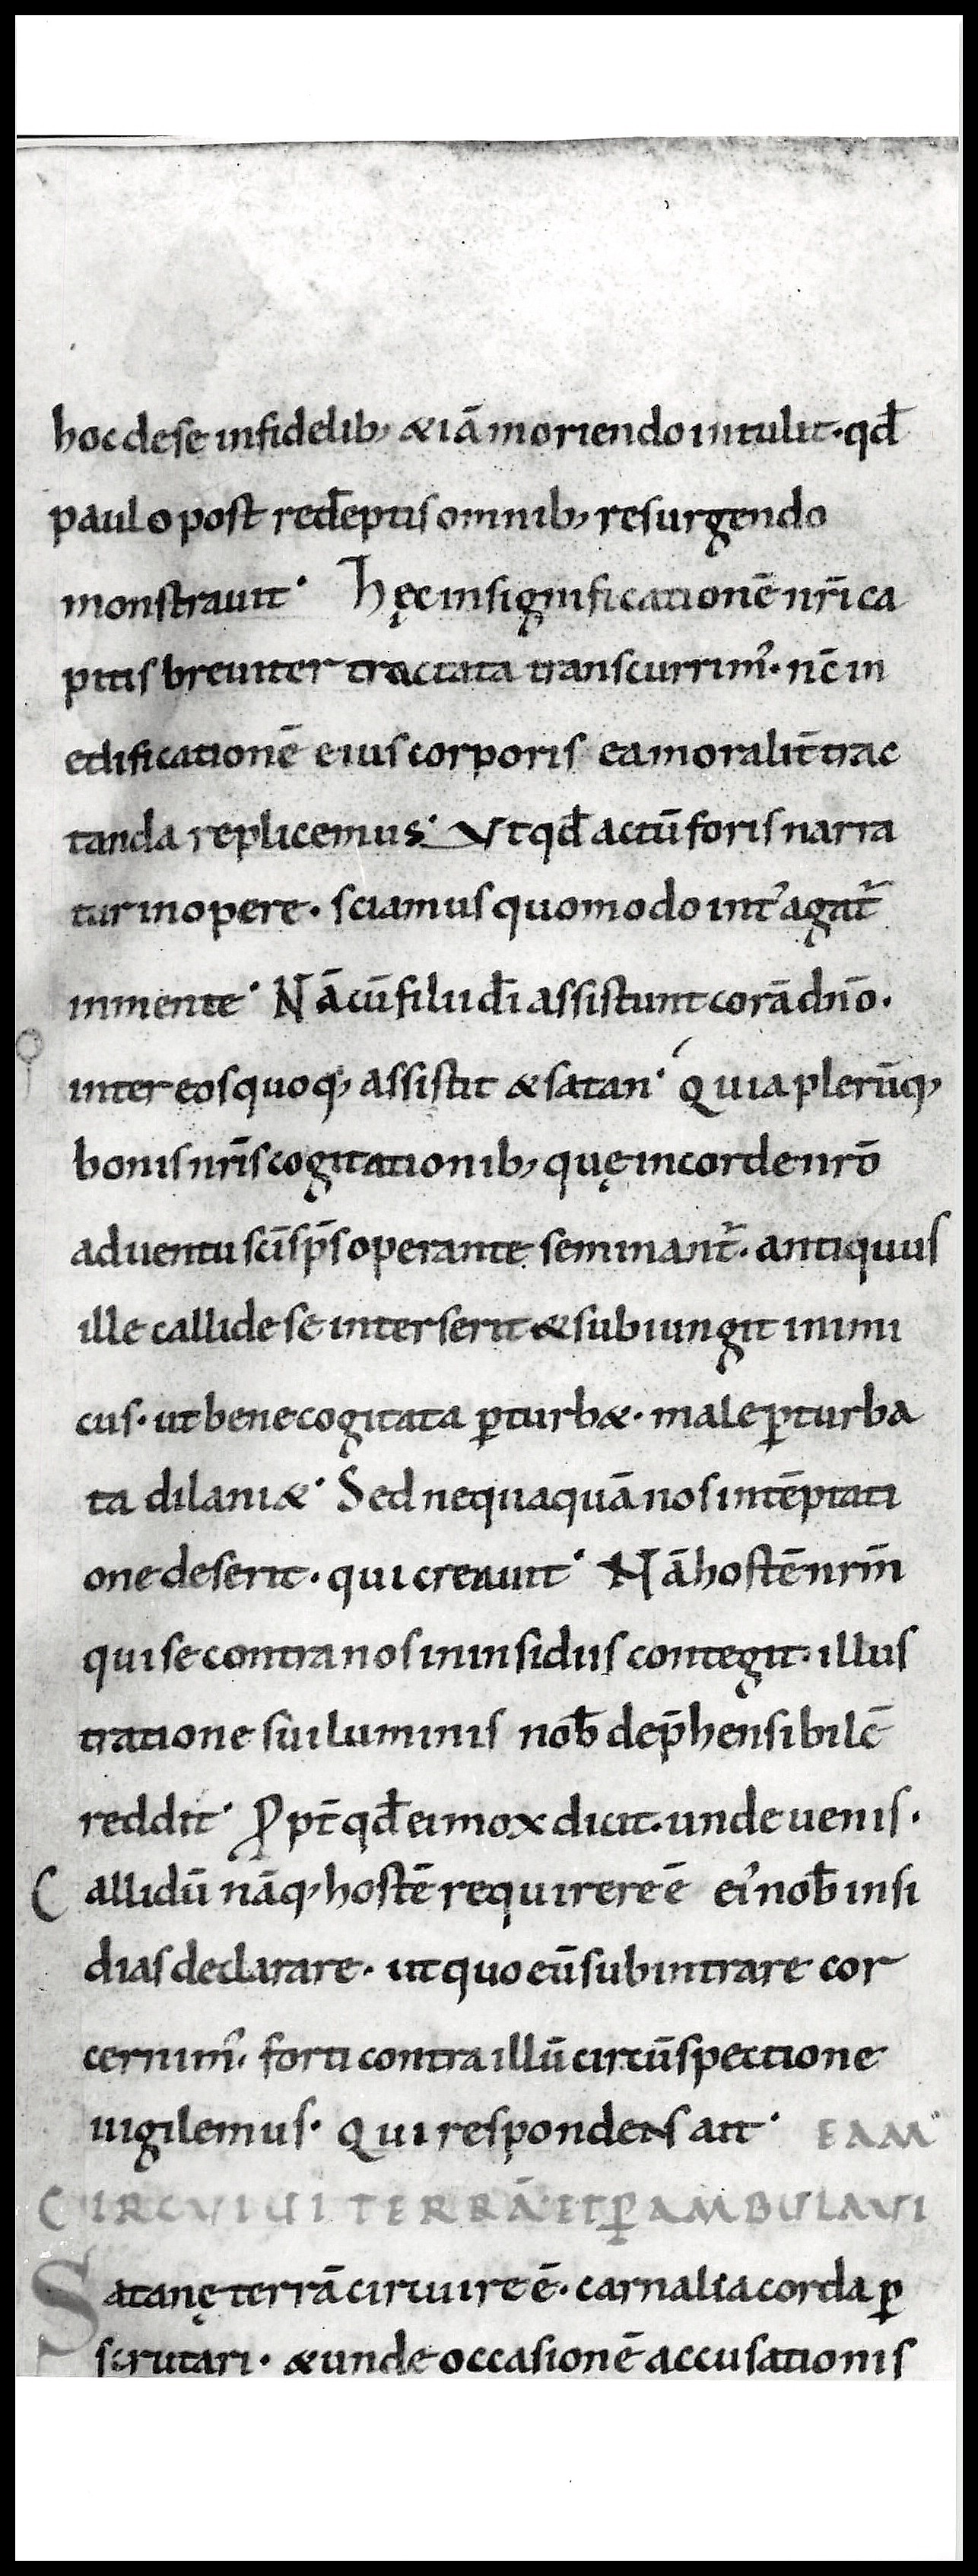 hoc de se infidelib; & iā moriendo intulit· qđ
paulo post redēptis omnib; resurgendo
monstrauit· Hęc in significationē nr̄i ca
pitis breuiter tractata transcurrim᾽· nc̄ in
edificationē eius corporis ea moralit̄ trac
tanda replicemus· Ut qđ actū foris narra
tur in opere· sciamus quomodo int᾽ agat᷑
in mente· Nā cū filii dī assistunt corā dn̄o·
inter eos quoq; assistit & satan· Quia plerūq;
bonis nr̄is cogitationib; quę in corde nr̄o
aduentu sc̄i sp̄s operante seminant᷑· antiquus
ille callide se interserit & subiungit inimi
cus· ut bene cogitata ꝑturb&· male ꝑturba
ta dilani&· Sed nequaquā nos in tēptati
one deserit· qui creauit· Nā hostē nr̄m
qui se contra nos in insidiis contegit· illus
tratione sui luminis nob̄ dep̄hensibilē
reddit· Ꝓpt̄ qđ ei mox dicit· unde uenis·
Callidū nāq; hostē requirere ē ei᾽ nob̄ insi
dias declarare· ut quo eū subintrare cor
cernim᾽· forti contra illū circūspectione
uigilemus· Qui respondens ait· EAM
CIRCUIUI TERRĀ· ET ꝐAMBULAUI
Satanę terrā circuire ē· carnalia corda ꝑ
scrutari· & unde occasionē accusationis